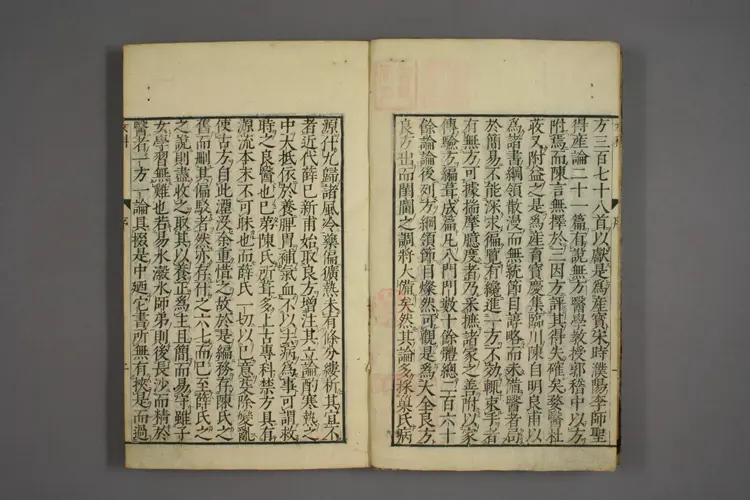 方三百七十八首以獻是為產寶宋時濮陽李師聖
得產論二十一篇有說無方醫學教授郭稽中以方
附焉而陳言無擇於三因方評其得失確矣婺醫杜
荍又附益之是為產育寶慶集臨川陳自明良甫以
為諸書綱領散漫而無統節目諄略而未備醫者局
於簡易不能深求徧覽有纔進一方不效輒束手者
有無方可據揣摩臆度者乃采摭諸家之善附以家
傳驗方編葺成篇凡八門門數十餘體總二百六十
餘論論後列方綱領節目燦然可觀是為大全良方
良方出而閨閫之調將大備矣然其論多採巢氏病
源什九歸諸風冷藥偏獷熱未有條分縷析其宜不
者近代薛巳新甫始取良方增注其立論酌寒熱之
中大抵依於養脾胃補氣血不以去病為事可謂救
時之良醫也巳第陳氏所葺多上古專科禁方具有
源流本末不可昧也而薛氏一切以巳意芟除變亂
使古方自此湮沒余重惜之故於是編務存陳氏之
舊而刪其偏駁者然亦存什之六七而巳至薛氏之
之說則盡收之取其以養正為主且簡而易守雖子
女學習無難也若易水瀫水師弟則後長沙而精於
醫者一方一論具掇是中廼它書所無有挾是而過